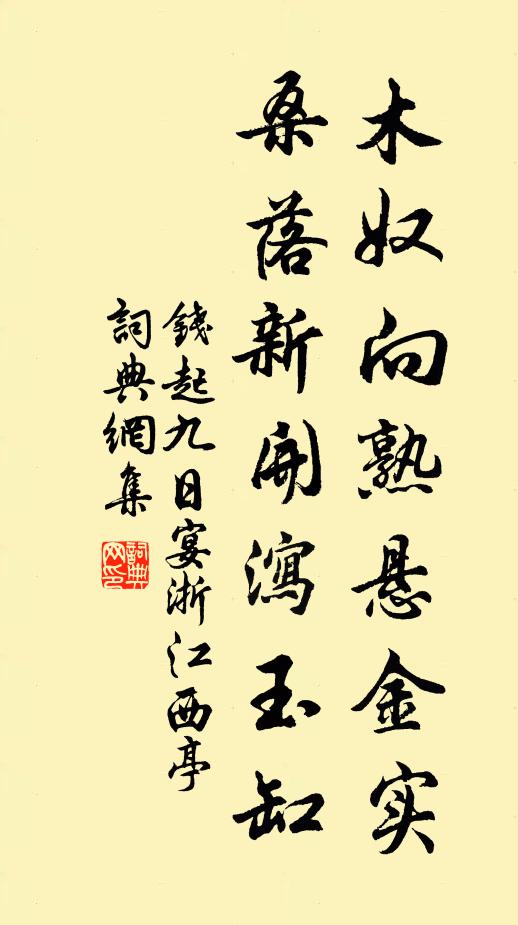 木奴向熟悬金实
桑落新開瀉玉缸
錢起九日宴浙江西亭
詞典網集
詞典
网印